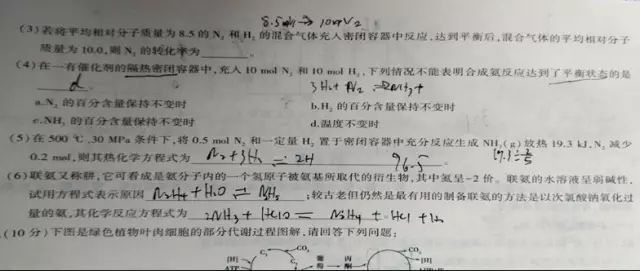 (3)若将平均相对分子质量为8.5的N₂和H₂的混合气体充入密闭容器中反应,达到平衡后,混合气体的平均相对分子
质量为10.0,则N₂的转化率为
(4)在一有催化剂的隔热密闭容器中,充入10 mol N₂和10 mol H₂,下列情况不能表明合成氨反应达到了平衡状态的是
d
a.N₂的百分含量保持不变时 b.H₂的百分含量保持不变时
c.NH₃的百分含量保持不变时 d.温度不变时
(5)在500 ℃、30 MPa条件下,将0.5 mol N₂和一定量H₂置于密闭容器中充分反应生成NH₃(g)放热19.3 kJ,N₂减少
0.2 mol,则其热化学方程式为 N₂+3H₂⇌2H 96.5
(6)联氨又称肼,它可看成是氨分子内的一个氢原子被氨基所取代的衍生物,其中氮呈-2价。联氨的水溶液呈弱碱性,
试用方程式表示原因 N₂H₄+H₂O⇌ ;较古老但仍然是最有用的制备联氨的方法是以次氯酸钠氧化过
量的氨,其化学反应方程式为 2NH₃+HClO=N₂H₄+HCl+H₂
(10分)下图是绿色植物叶肉细胞的部分代谢过程图解,请回答下列问题:
[H] C₃ CO₂ 葡 丙 [H]
ATP 萄 酮 CO₂